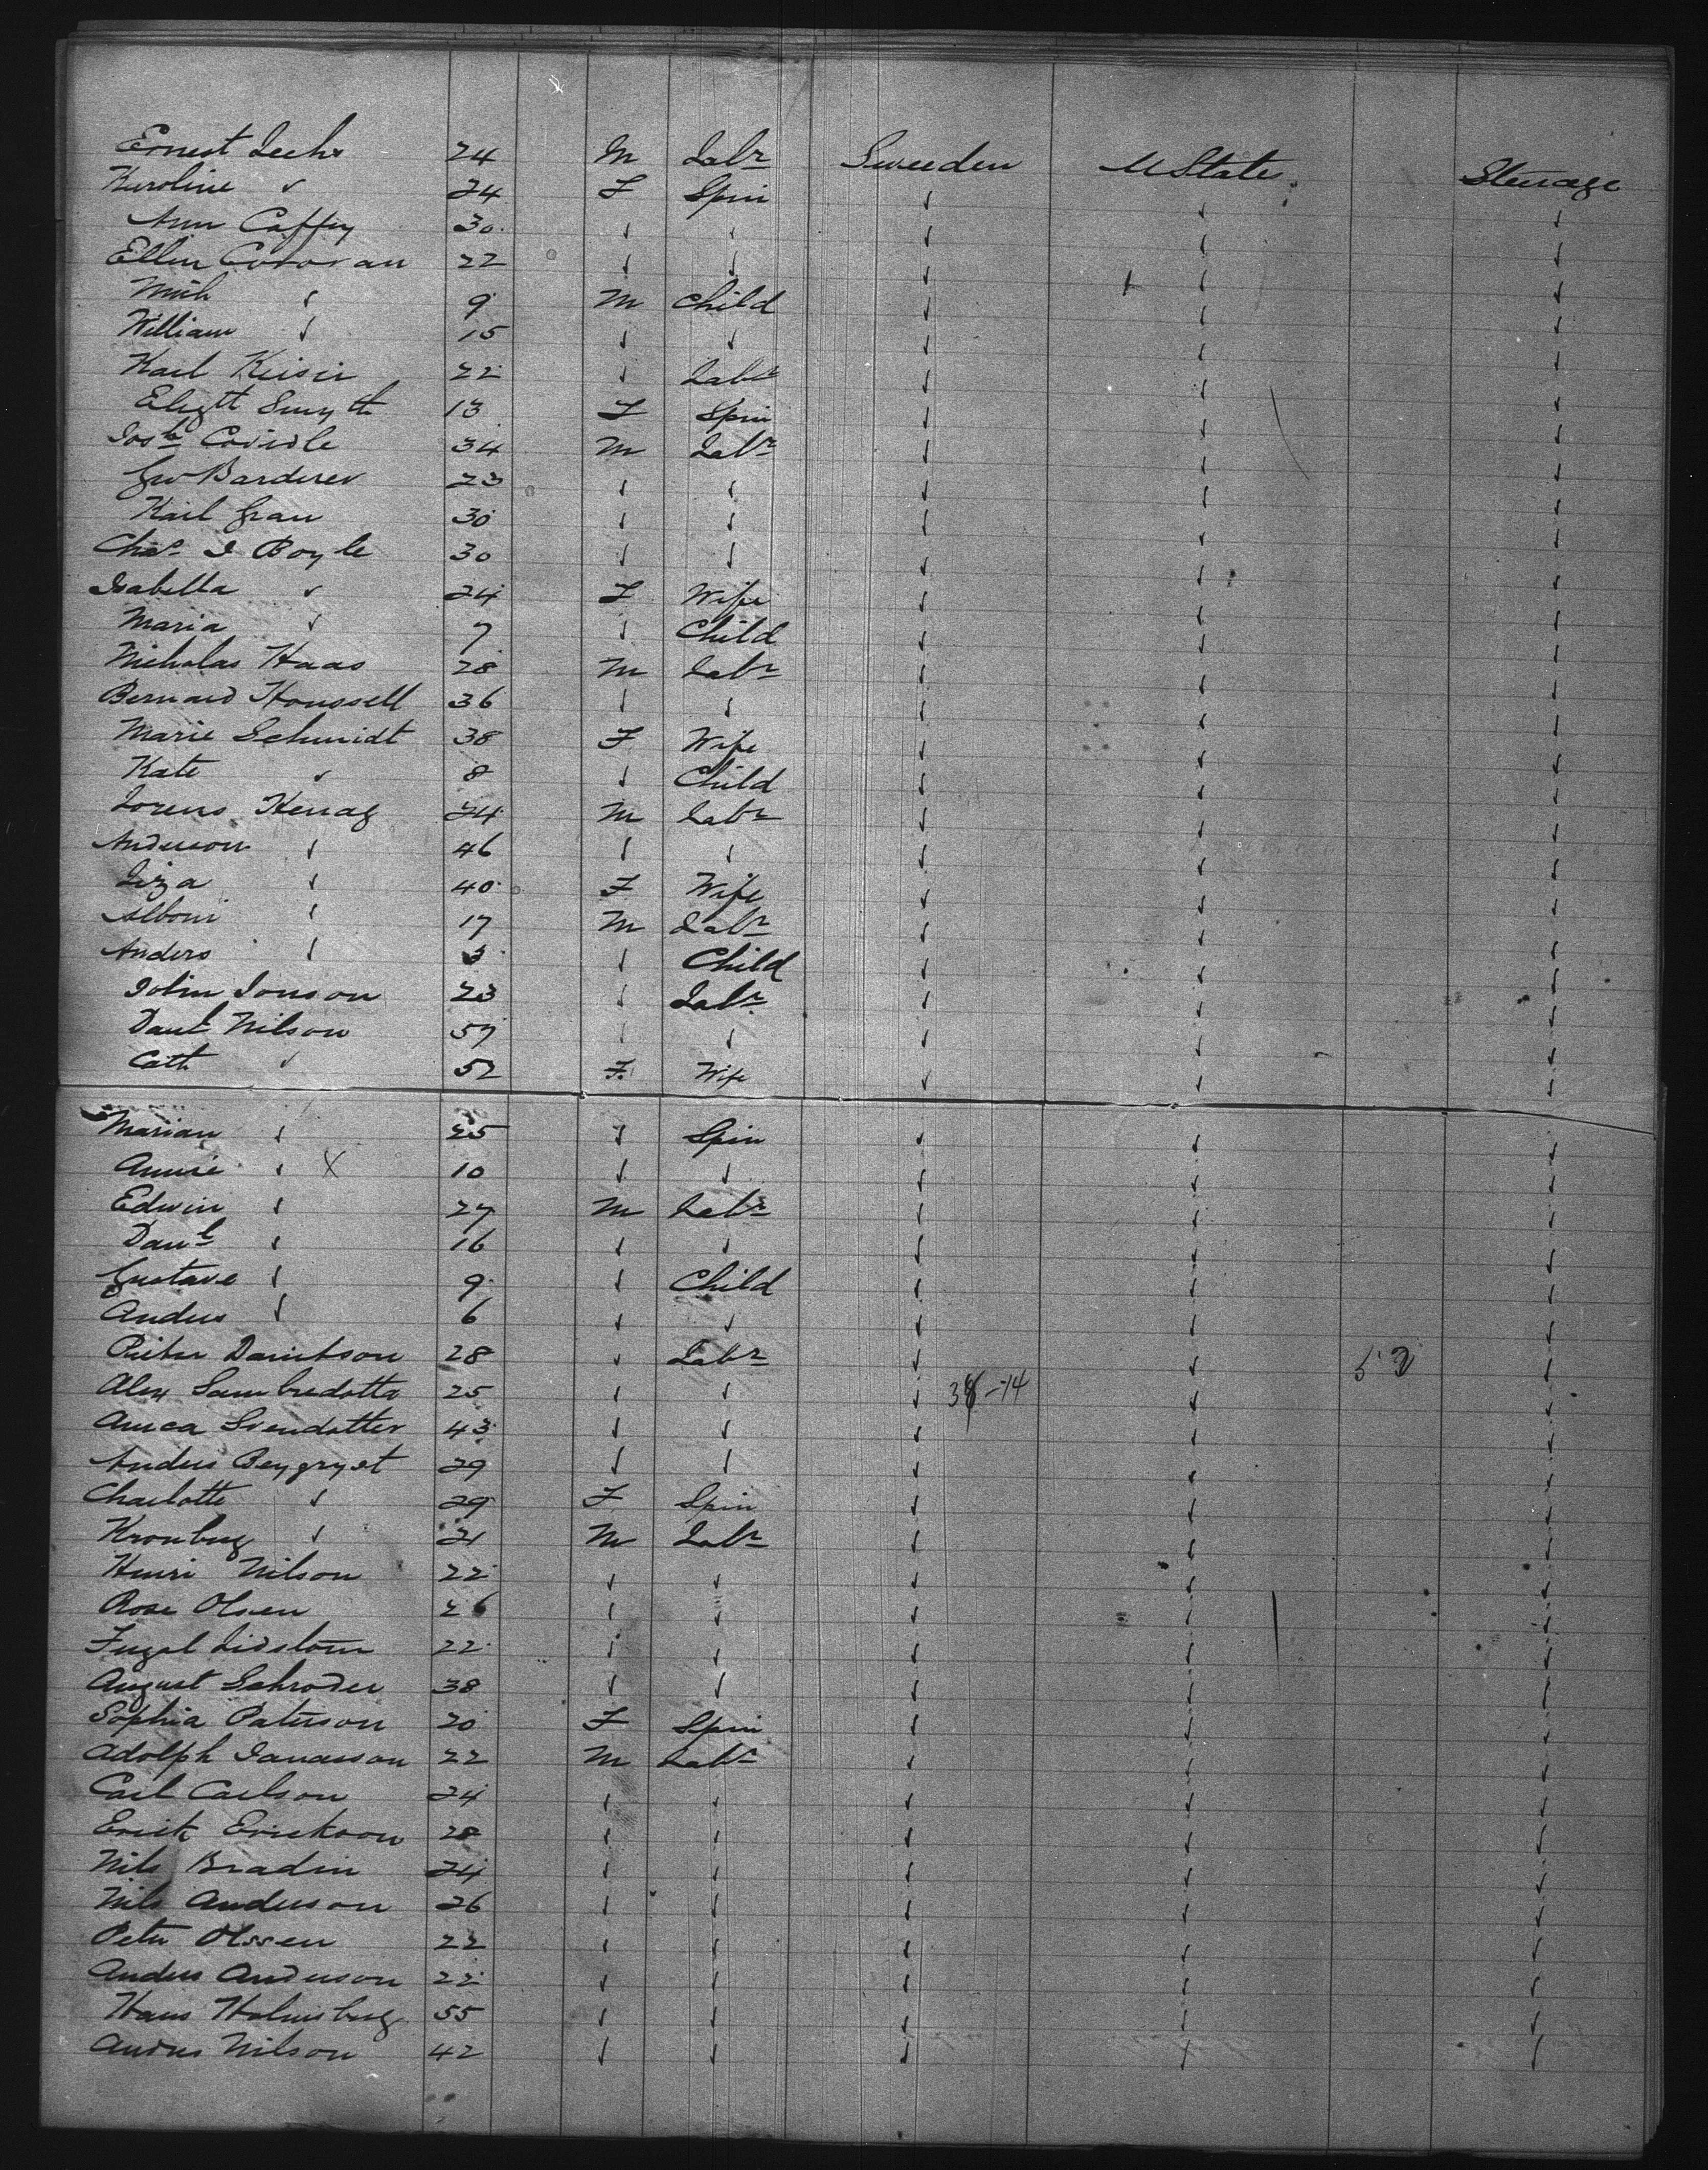 Ernest Lechs 24 M Labr Sweeden U State, Steerage
Karoline ✓ 24 F Spin ✓ ✓ ✓
Ann Caffey 30 ✓ ✓ ✓ ✓ ✓
Ellin Corcoran 22 ✓ ✓ ✓ ✓ ✓
Mich ✓ 9 M Child ✓ ✓ ✓
William ✓ 15 ✓ ✓ ✓ ✓ ✓
Karl Keisir 22 ✓ Labr ✓ ✓ ✓
Elizth Smyth 13 F Spin ✓ ✓ ✓
Josh 34 M Labr ✓ ✓ ✓
Geo 23 ✓ ✓ ✓ ✓ ✓
Karl Grau 30 ✓ ✓ ✓ ✓ ✓
Chas. J Boyle 30 ✓ ✓ ✓ ✓ ✓
Isabella ✓ 24 F Wife ✓ ✓ ✓
Maria ✓ 7 ✓ Child ✓ ✓ ✓
Nicholas Haas 28 M Labr ✓ ✓ ✓
Bernard Houssell 36 ✓ ✓ ✓ ✓ ✓
Marie Schmidt 38 F Wife ✓ ✓ ✓
Kate ✓ 8 ✓ Child ✓ ✓ ✓
Lorens Herrag 24 M Labr ✓ ✓ ✓
Anderson ✓ 46 ✓ ✓ ✓ ✓ ✓
Liza ✓ 40 F Wife ✓ ✓ ✓
Alboni ✓ 17 M Labr ✓ ✓ ✓
Anders ✓ 3 ✓ Child ✓ ✓ ✓
John Jonson 23 ✓ Labr ✓ ✓ ✓
Danl Nilson 57 ✓ ✓ ✓ ✓ ✓
Cath ✓ 52 F. Wife ✓ ✓ ✓
Marian ✓ 25 ✓ Spin ✓ ✓ ✓
Annie ✓ X 10 ✓ ✓ ✓ ✓ ✓
Edwin ✓ 27 M Labr ✓ ✓ ✓
Danl ✓ 16 ✓ ✓ ✓ ✓ ✓
Gustave ✓ 9 ✓ Child ✓ ✓ ✓
Anders ✓ 6 ✓ ✓ ✓ ✓ ✓
Pieter Danielson 28 ✓ Labr ✓ ✓ ✓
Alex 25 ✓ ✓ ✓ ✓ ✓
Anica Svendotter 43 ✓ ✓ ✓ ✓ ✓
Anders 29 ✓ ✓ ✓ ✓ ✓
Charlotte ✓ 29 F Spin ✓ ✓ ✓
Kronberg ✓ 21 M Labr ✓ ✓ ✓
Henri Nilson 22 ✓ ✓ ✓ ✓ ✓
Rose Olsen 26 ✓ ✓ ✓ ✓ ✓
Lidstom 22 ✓ ✓ ✓ ✓ ✓
August Schroder 38 ✓ ✓ ✓ ✓ ✓
Sophia Paterson 20 F Spin ✓ ✓ ✓
Adolph Janasson 22 M Labr ✓ ✓ ✓
Carl Carlson 24 ✓ ✓ ✓ ✓ ✓
Erick Erickson 28 ✓ ✓ ✓ ✓ ✓
Nils Bradin 24 ✓ ✓ ✓ ✓ ✓
Nils Anderson 26 ✓ ✓ ✓ ✓ ✓
Peter Olssen 22 ✓ ✓ ✓ ✓ ✓
Anders Anderson 22 ✓ ✓ ✓ ✓ ✓
Hans Holmsberg 55 ✓ ✓ ✓ ✓ ✓
Andrus Nilson 42 ✓ ✓ ✓ ✓ ✓